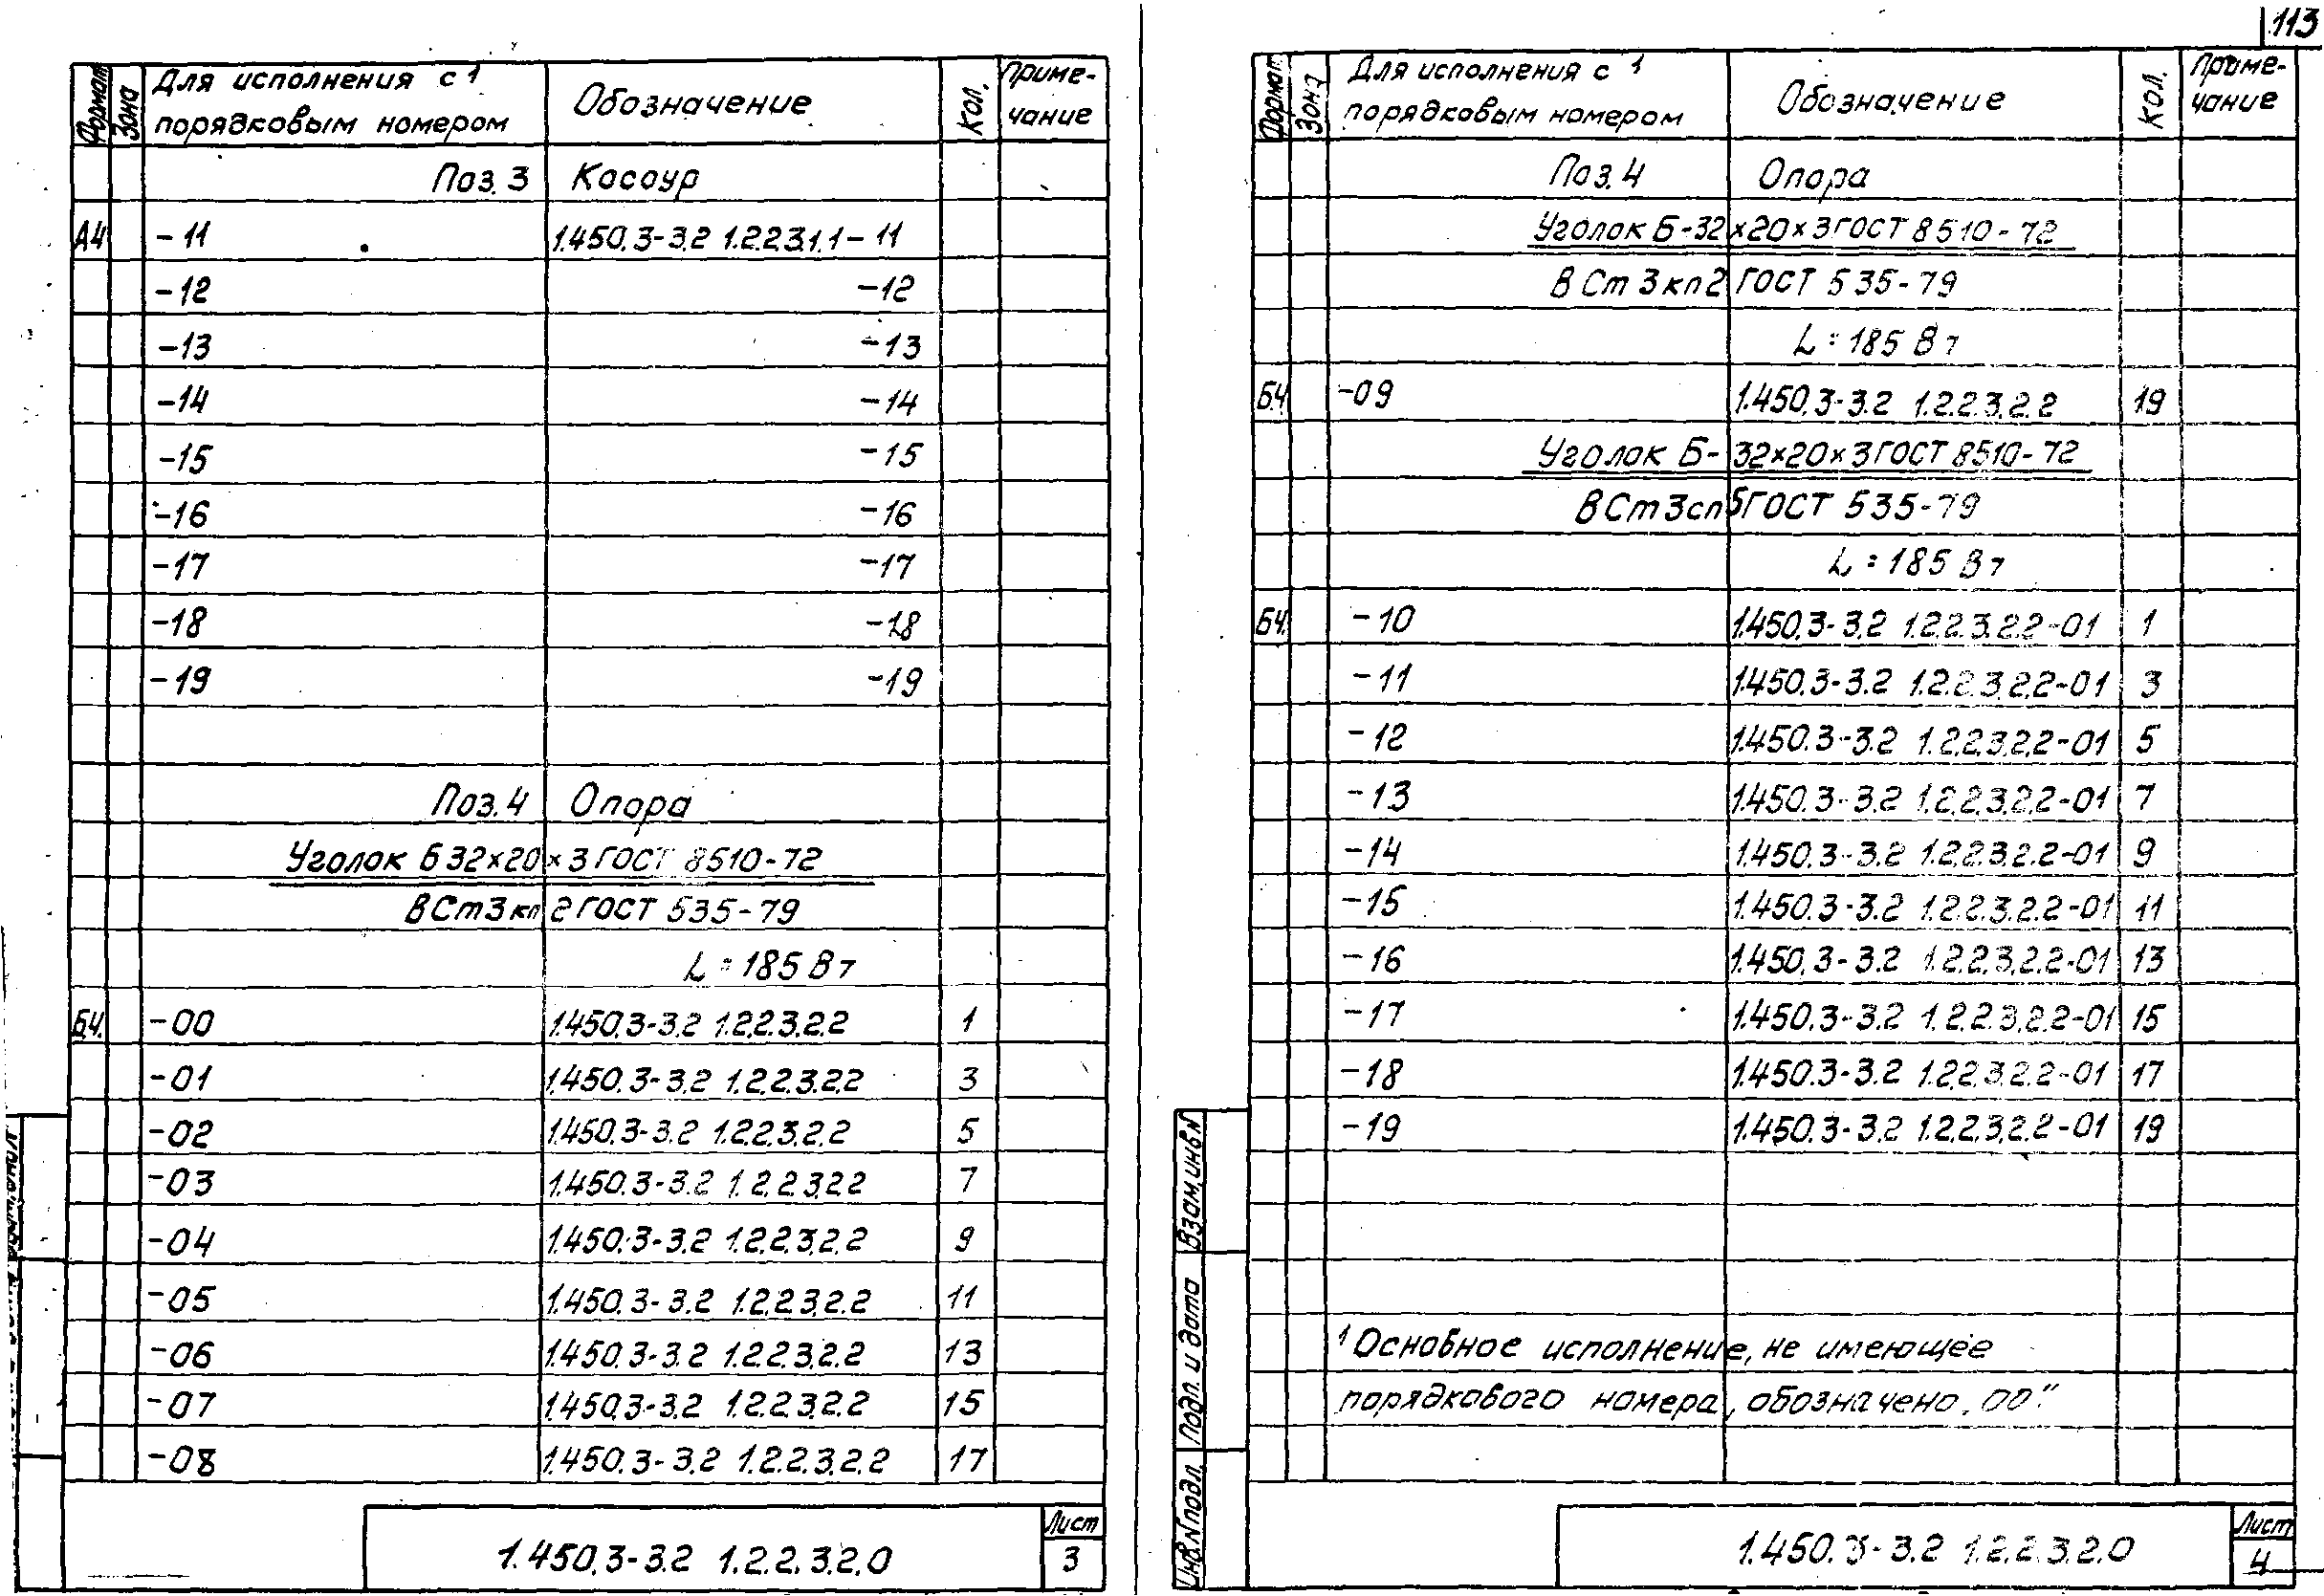 113
Формат Зона Для исполнения с 1 порядковым номером Обозначение Кол. Приме-чание
Поз. 3 Косоур
А4 -11 1.450.3-3.2 1.2.2.3.1.1-11
-12 -12
-13 -13
-14 -14
-15 -15
-16 -16
-17 -17
-18 -18
-19 -19
Поз. 4 Опора
Уголок Б 32×20×3 ГОСТ 8510-72
ВСт3кп2 ГОСТ 535-79
L=185 Вт
БЧ. -00 1.450.3-3.2 1.2.2.3.2.2 1
-01 1.450.3-3.2 1.2.2.3.2.2 3
-02 1.450.3-3.2 1.2.2.3.2.2 5
-03 1.450.3-3.2 1.2.2.3.2.2 7
-04 1.450.3-3.2 1.2.2.3.2.2 9
-05 1.450.3-3.2 1.2.2.3.2.2 11
-06 1.450.3-3.2 1.2.2.3.2.2 13
-07 1.450.3-3.2 1.2.2.3.2.2 15
-08 1.450.3-3.2 1.2.2.3.2.2 17
1.450.3-3.2 1.2.2.3.2.0
Лист
3
Формат Зона Для исполнения с 1 порядковым номером Обозначение Кол. Приме-чание
Поз. 4 Опора
Уголок Б-32×20×3 ГОСТ 8510-72
ВСт3кп2 ГОСТ 535-79
L=185 Вт
БЧ -09 1.450.3-3.2 1.2.2.3.2.2 19
Уголок Б-32×20×3 ГОСТ 8510-72
ВСт3сп5 ГОСТ 535-79
L=185 Вт
БЧ. -10 1.450.3-3.2 1.2.2.3.2.2-01 1
-11 1.450.3-3.2 1.2.2.3.2.2-01 3
-12 1.450.3-3.2 1.2.2.3.2.2-01 5
-13 1.450.3-3.2 1.2.2.3.2.2-01 7
-14 1.450.3-3.2 1.2.2.3.2.2-01 9
-15 1.450.3-3.2 1.2.2.3.2.2-01 11
-16 1.450.3-3.2 1.2.2.3.2.2-01 13
-17 1.450.3-3.2 1.2.2.3.2.2-01 15
-18 1.450.3-3.2 1.2.2.3.2.2-01 17
-19 1.450.3-3.2 1.2.2.3.2.2-01 19
1 Основное исполнение, не имеющее
порядкового номера, обозначено „00"
Взам. инв N
Подп. и дата
Инв. N подл.
1.450.3-3.2 1.2.2.3.2.0
Лист
4